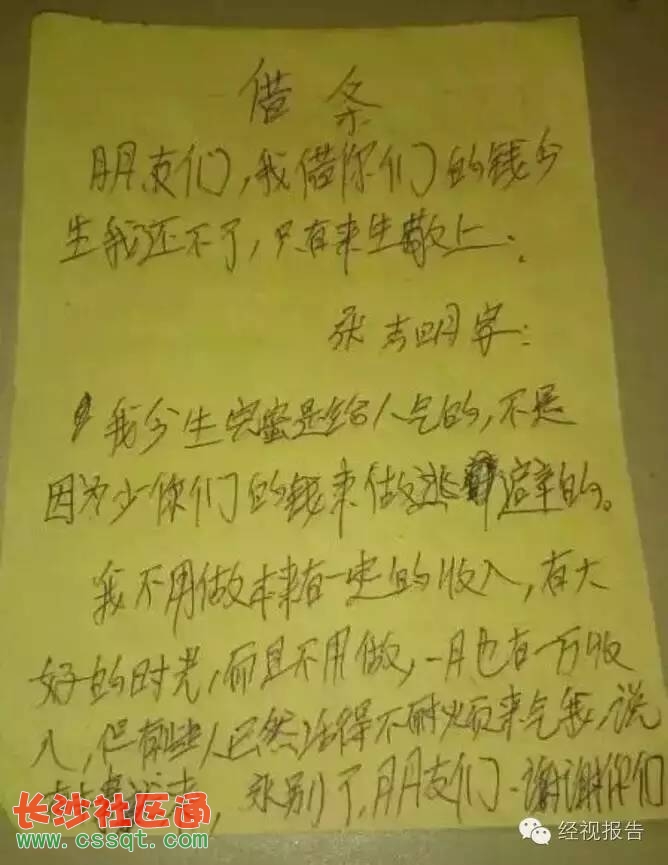 借条
朋友们,我借你们的钱今
生我还不了,只有来生敬上:
张吉明字:
我今生完蛋是给人气的,不是
因为少你们的钱来做逃避的。
我不用做本来有一定的收入,有大
好的时光,而且不用做,一月也有一万收
入,但有些人已然活得不耐火而来气我,说
永别了,朋友们,谢谢你们
长沙社区通
www.cssqt.com
经视报告